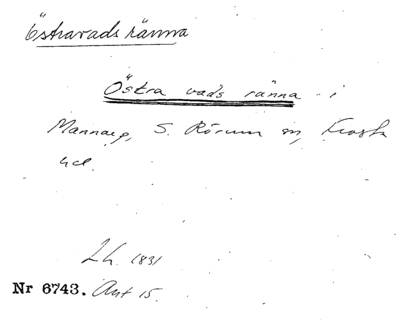 Östravads ränna
Östra vads ränna i
Mannarp, S. Rörum sn, Frosta
hd.
Lh. 1831
Nr 6743. Ant 15.